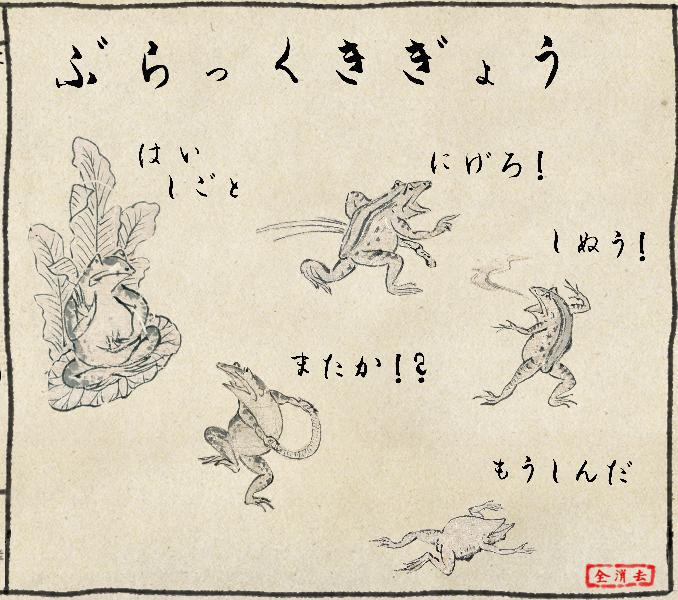 ぶらっくきぎょう
はい
しごと
にげろ！
しぬぅ！
またか！？
もうしんだ
全消去